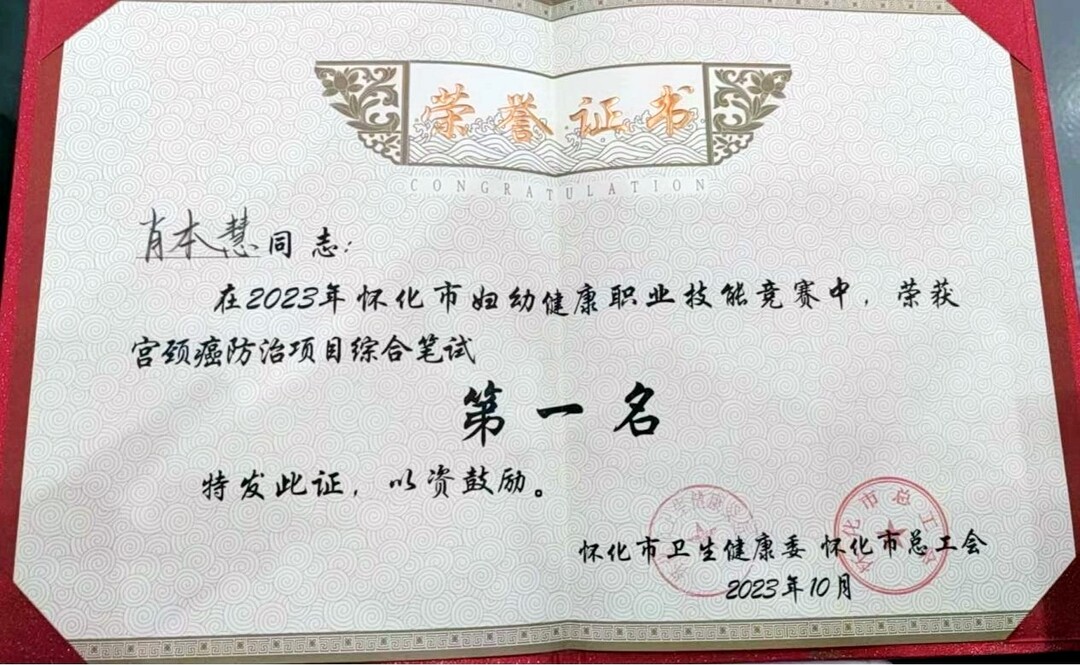 荣誉证书
CONGRATULATION
肖本慧同志:
在2023年怀化市妇幼健康职业技能竞赛中,荣获
宫颈癌防治项目综合笔试
第一名
特发此证,以资鼓励。
怀化市卫生健康委 怀化市总工会
2023年10月
怀化市总工会